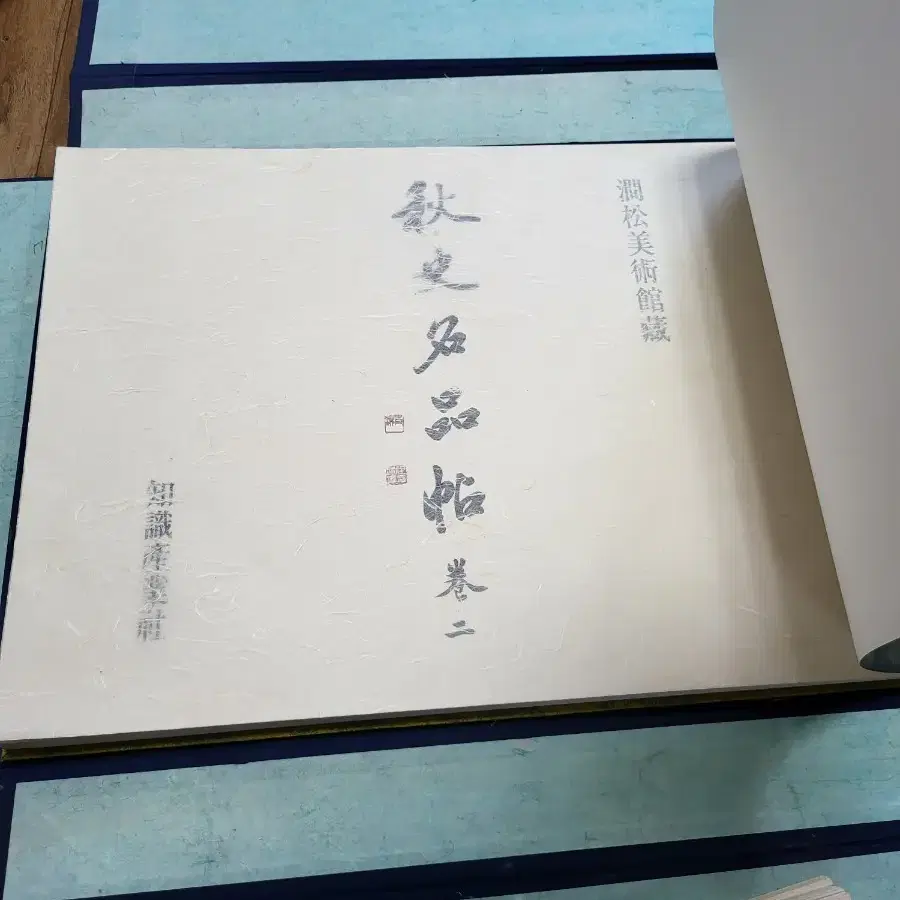 澗松美術館藏
秋史名品帖 卷二
知識產業社